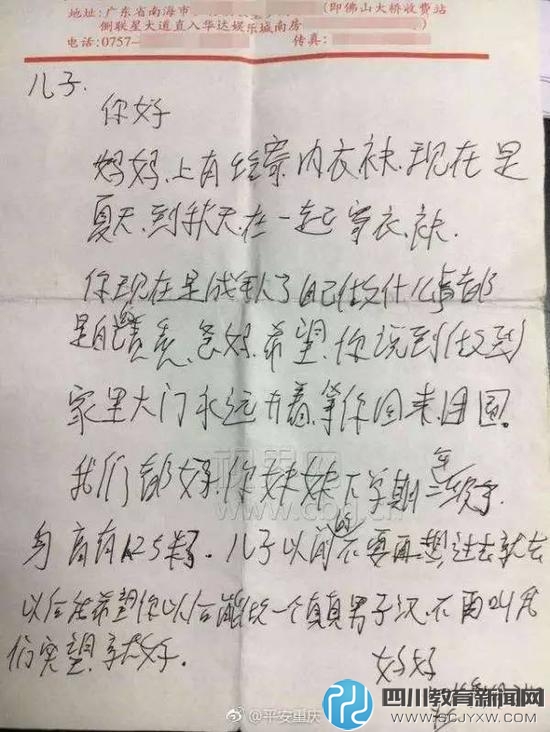 地址:广东省南海市 (即佛山大桥收费站
侧联星大道直入华达娱乐城南房
电话:0757- 传真:
儿子.
你好
妈妈.上有给寄内衣裤.现在是
夏天.到秋天在一起寄衣.裤.
你现在是成年人了自己做什么事都
是自己负责.爸妈.希望.你说到做到
家里大门永远开着.等你回来团圆。
我们都好.你妹妹下学期三年级了.
身高有1.25米了.儿子以前的不要再想过去就去
以后 希望你以后能做一个真真男子汉.不要叫我
们失望.就好.
妈妈
@平安重庆
四川教育新闻网
WWW.SCJYXW.COM